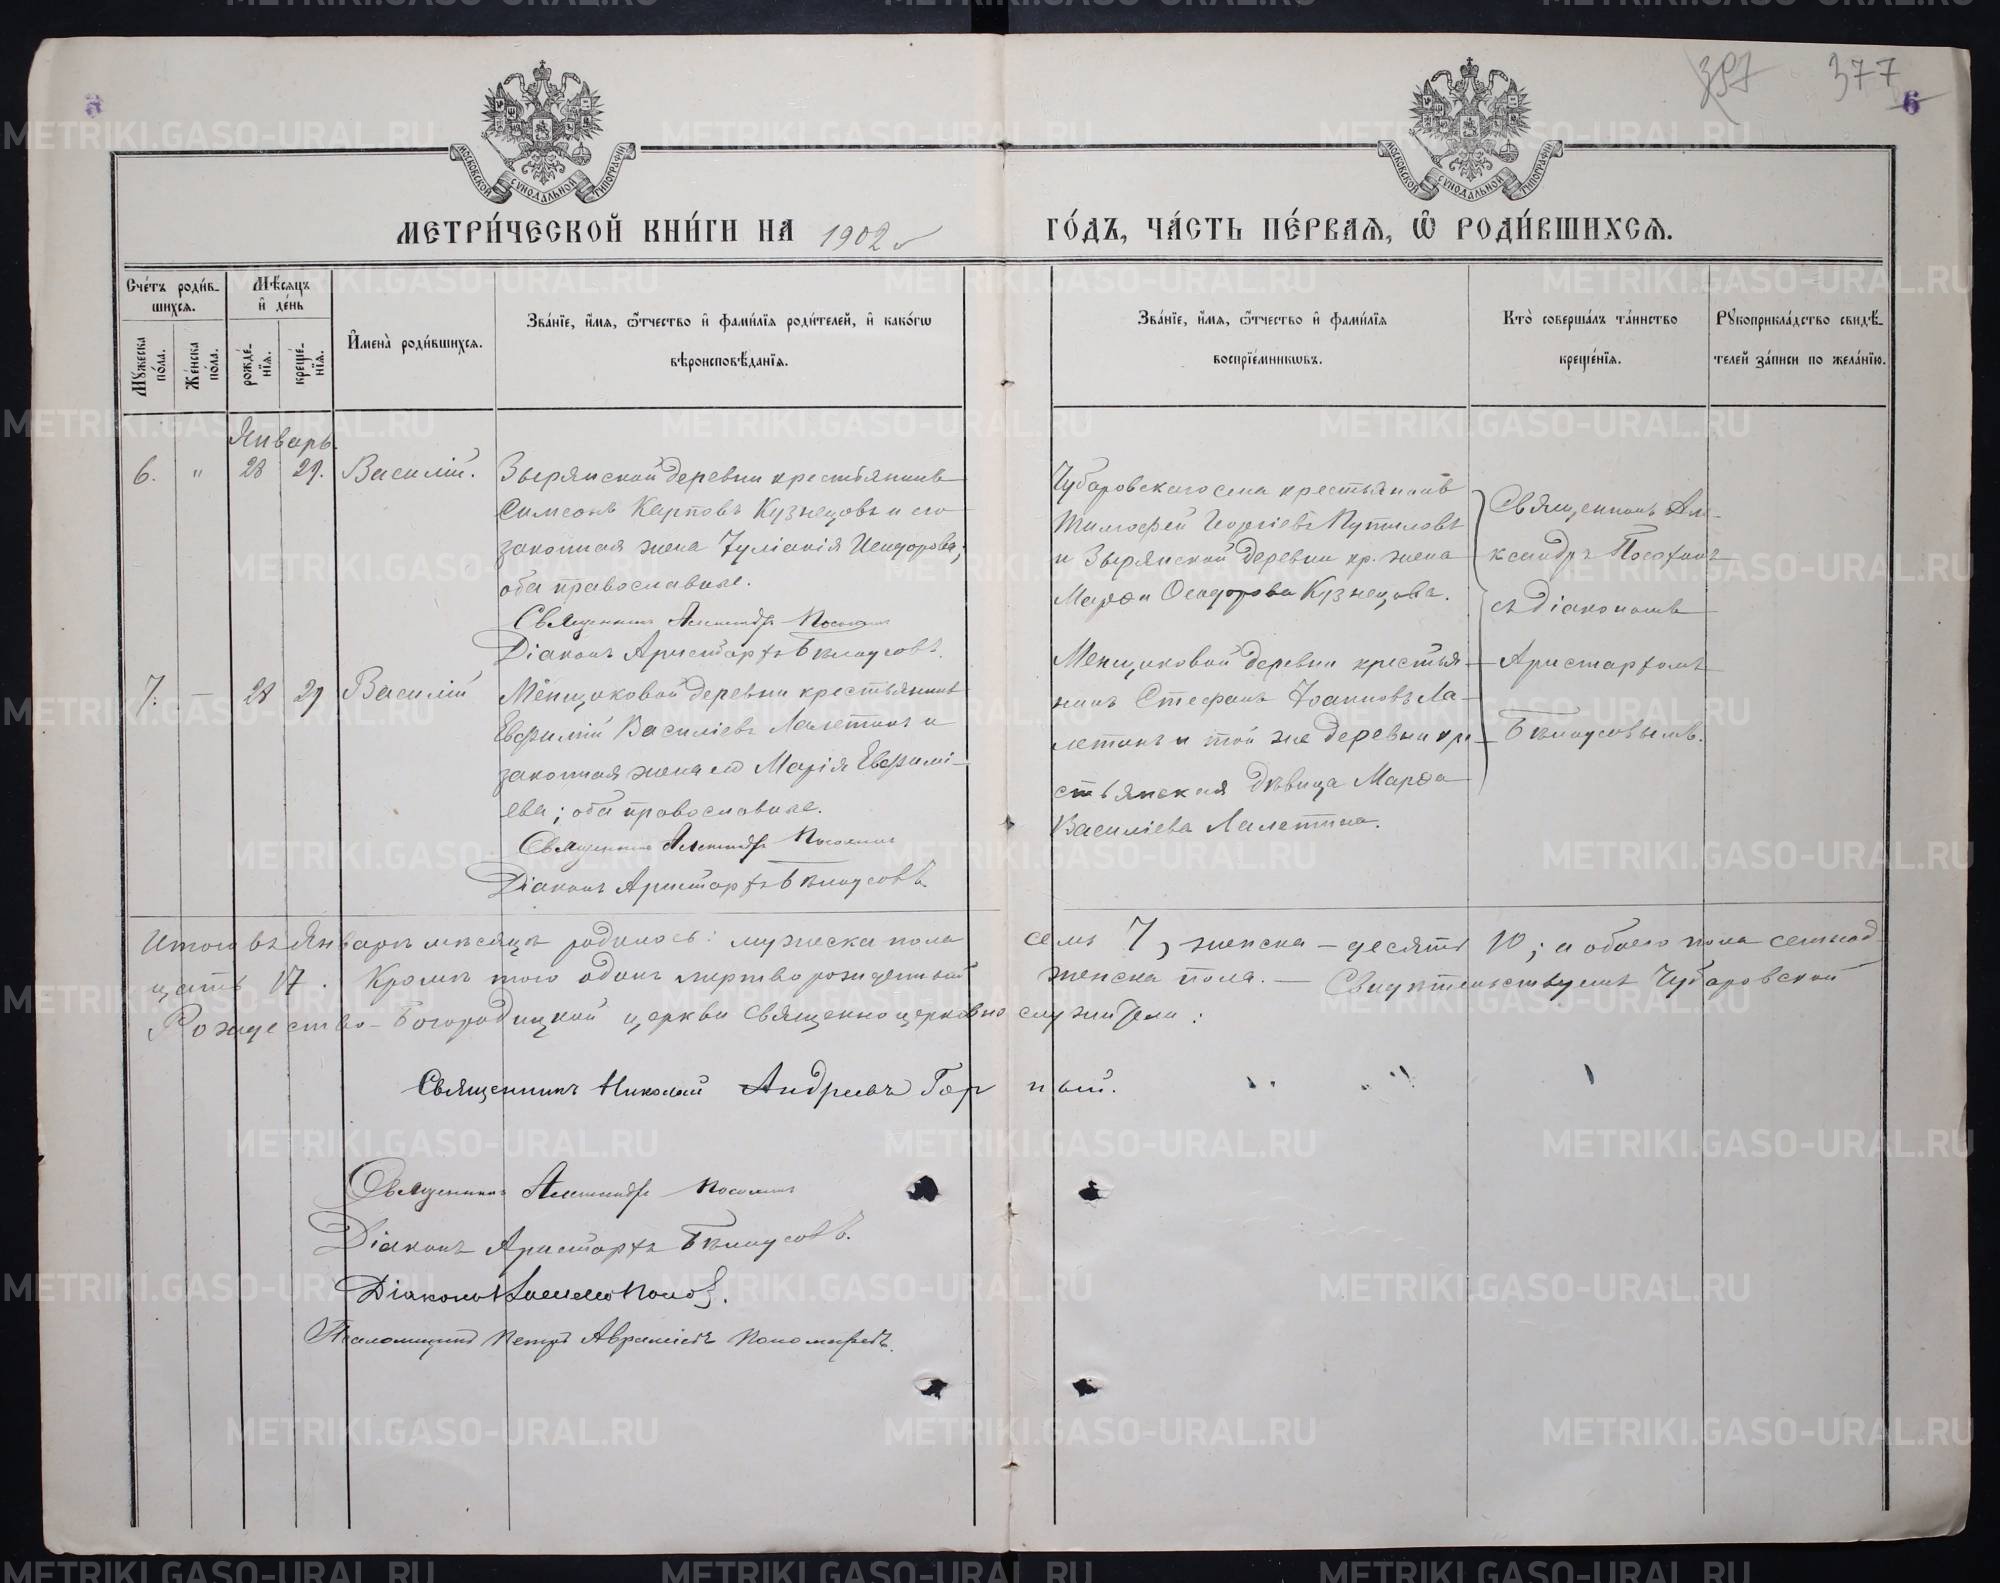 5
397
377
6
МОСКОВСКОЙ СѴНОДАЛЬНОЙ ТИПОГРАФІИ
МОСКОВСКОЙ СѴНОДАЛЬНОЙ ТИПОГРАФІИ
МЕТРИ́ЧЕСКОЙ КНИ́ГИ НА 1902
ГО́ДЪ, ЧА́СТЬ ПЕ́РВАѦ, Ѽ РОДИ́ВШИХСѦ.
Сче́тъ роди́в-
шихсѧ.
Мѣ́сѧцъ
и де́нь
Мꙋ́жеска
по́ла.
Же́нска
по́ла.
рожде́-
нїѧ.
креще́-
нїѧ.
И҆мена̀ роди́вшихсѧ.
Зва́нїе, и҆́мѧ, ѻ҆́тчество и҆ фами́лїѧ роди́телей, и҆ како́гѡ
вѣроисповѣ́данїѧ.
Зва́нїе, и҆́мѧ, ѻ҆́тчество и҆ фами́лїѧ
воспрїе́мникѡвъ.
Кто̀ соверша́лъ та́инство
креще́нїѧ.
Рꙋкоприкла́дство свидѣ́-
телей за́писи по жела́нїю.
Январь.
6. " 28 29. Василій.
Зырянской деревни крестьянинъ
Симеонъ Карповъ Кузнецовъ и его
законная жена Іуліанія Исидорова;
оба православные.
Священникъ Александръ Посохинъ
Діаконъ Аристархъ Бѣлоусовъ.
Чубаровскаго села крестьянинъ
Тимофей Георгіевъ Путиловъ
и Зырянской деревни кр. жена
Марѳа Ѳеодорова Кузнецова.
7. — 28 29 Василій
Менщиковой деревни крестьянинъ
Евфимій Василіевъ Лалетинъ и
законная жена его Марія Евфимі-
ева; оба православные.
Священникъ Александръ Посохинъ
Діаконъ Аристархъ Бѣлоусовъ.
Менщиковой деревни крестья-
нинъ Стефанъ Іоанновъ Ла-
летинъ и той же деревни кре-
стьянская дѣвица Марѳа
Василіева Лалетина.
Священникъ Але-
ксандръ Посохинъ
съ діакономъ
Аристархомъ
Бѣлоусовымъ.
Итого въ Январѣ мѣсяцѣ родилось: мужеска пола семь 7, женска – десять 10; а обоего пола семнад-
цать 17. Кромѣ того одинъ мертворожденный женска пола. — Свидѣтельствуемъ Чубаровской
Рождество-Богородицкой церкви священноцерковнослужители:
Священникъ Николай Андреевъ Горный.
Священникъ Александръ Посохинъ
Діаконъ Аристархъ Бѣлоусовъ.
Діаконъ Поповъ.
Псаломщикъ Петръ Авраміевъ Пономаревъ.